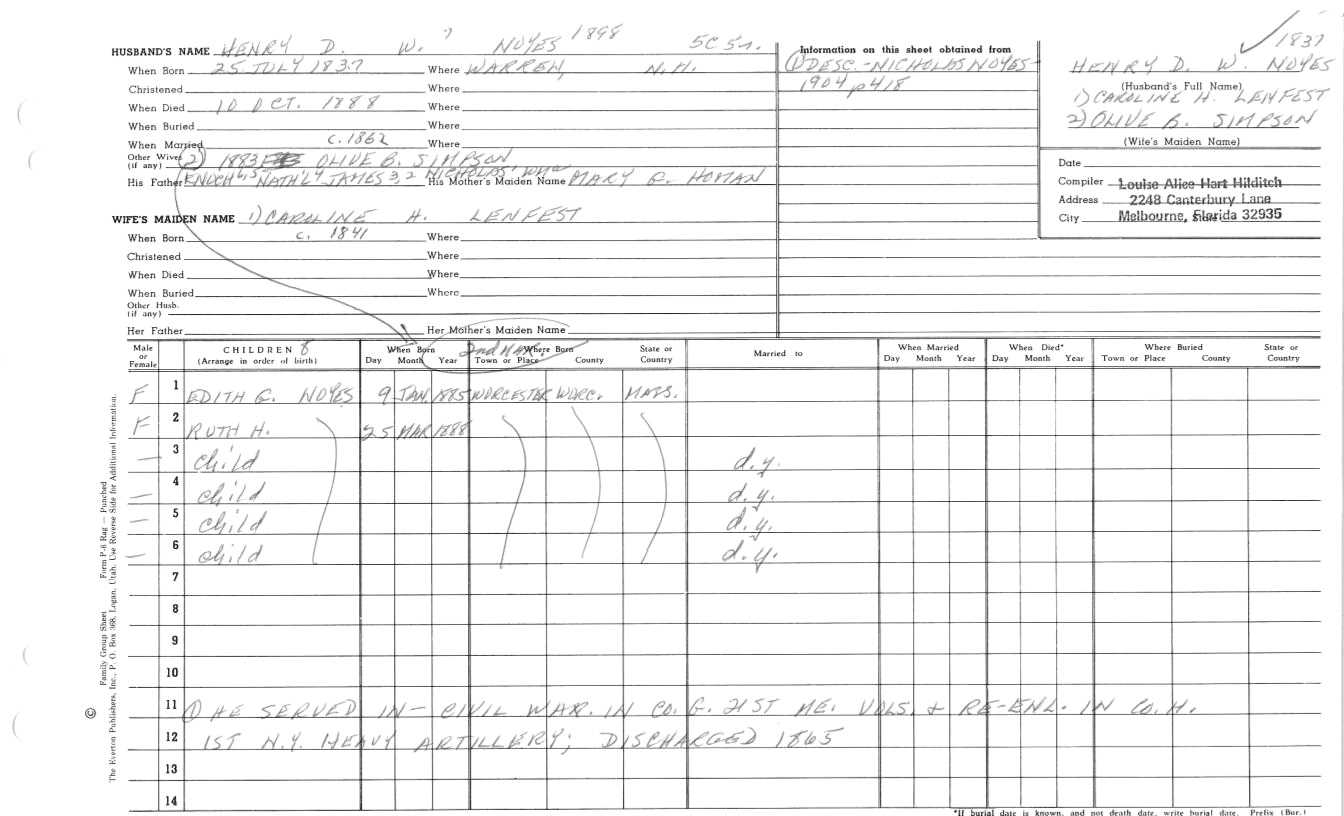 HUSBAND'S NAME HENRY D. W. NOYES 1898 5C 5n.
When Born 25 JULY 1837 Where WARREN, N.H.
Christened Where
When Died 10 OCT. 1888 Where
When Buried Where
When Married c. 1862 Where
Other Wives (if any) 2) 1883 OLIVE B. SIMPSON
His Father ENOCH 6,5 NATH'L 4 JAMES 3, 2 NICHOLAS' His Mother's Maiden Name MARY G. HOMAN
WIFE'S MAIDEN NAME 1) CAROLINE H. LENFEST
When Born c. 1841 Where
Christened Where
When Died Where
When Buried Where
Other Husb. (if any)
Her Father Her Mother's Maiden Name
Information on this sheet obtained from
① DESC.-NICHOLAS NOYES-
1904 p418
1837
HENRY D. W. NOYES
(Husband's Full Name)
1) CAROLINE H. LENFEST
2) OLIVE B. SIMPSON
(Wife's Maiden Name)
Date
Compiler Louise Alice Hart Hilditch
Address 2248 Canterbury Lane
City Melbourne, Florida 32935
Male or Female CHILDREN 8 (Arrange in order of birth) When Born Day Month Year 2nd MAR. Where Born Town or Place County State or Country Married to When Married Day Month Year When Died* Day Month Year Where Buried Town or Place County State or Country
F 1 EDITH G. NOYES 9 JAN. 1885 WORCESTER WORC. MASS.
F 2 RUTH H. 25 MAR 1888
— 3 child d.y.
— 4 child d.y.
— 5 child d.y.
— 6 child d.y.
7
8
9
10
11 ① HE SERVED IN - CIVIL WAR. IN CO. G. 21ST ME. VOLS. & RE-ENL. IN CO. H.
12 1ST N.Y. HEAVY ARTILLERY; DISCHARGED 1865
13
14
*If burial date is known, and not death date, write burial date. Prefix (Bur.)
Family Group Sheet Form P-8 Rag — Punched
© The Everton Publishers, Inc., P. O. Box 368, Logan, Utah. Use Reverse Side for Additional Information.